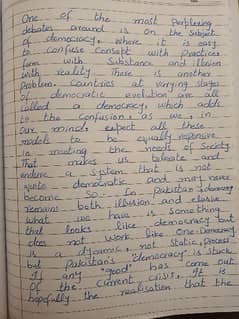 One of the most Perplexing
debates around is on the Subject
of democracy, where it is easy
to confuse Consept with Practice,
form with Substance and illusion
with reality. There is another
Problem. Countries at varying stages
of democratic evolution are all
called a democracy, which adds
to the Confusion, as we, in
our minds, expect all these
models to be equally responsive
in meeting the needs of Society.
That makes us tolerate and
endure a System that is not
quite democratic and may never
become so. In Pakistan, democracy
remains both illusion and elusive.
what we have is Something
that looks like democracy but
does not work like One. Democracy
is a dynamic, not static, process
but Pakistan's "democracy" is Stuck.
If any "good" has come out
of the current crisis, It is
hopefully the realisation that the